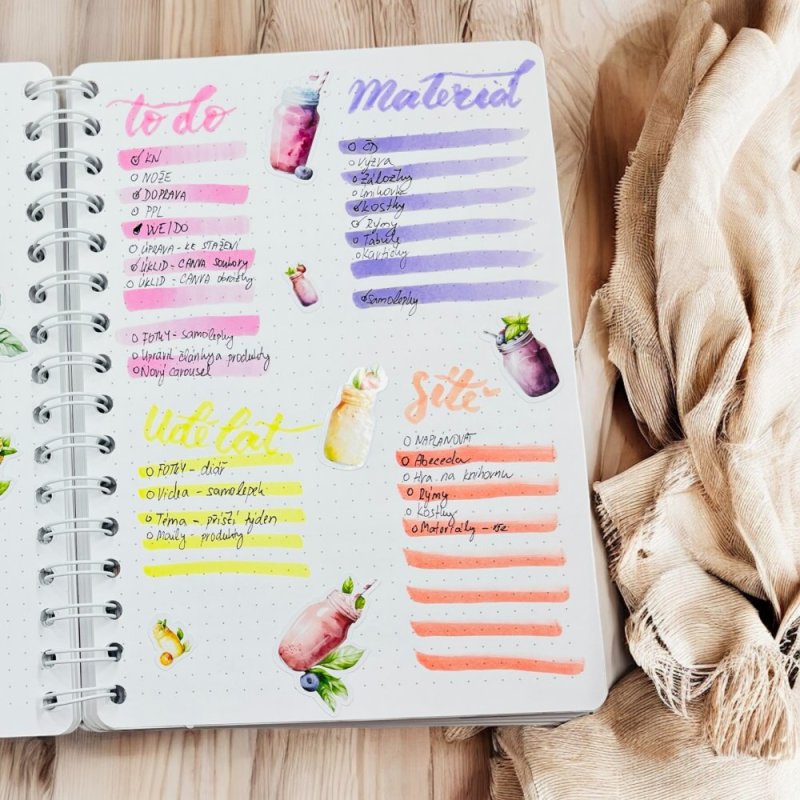 to do
KN
NOŽE
DOPRAVA
PPL
WEIDO
ÚPRAVA - KE STAŽENÍ
ÚKLID - CANVA soubory
ÚKLID - CANVA obrázky
FOTKY - samolepky
Upravit články a produkty
Nový carousel
Materiál
ČD
Výzva
Záložky
Knihovna
Kostky
Rýmy
Tabule
Kartičky
Samolepky
Udělat
FOTKY - diář
Videa - samolepek
Téma - příští týden
Maily produkty
Sítě
NAPLÁNOVAT
Abeceda
Hra na knihovnu
Rýmy
Kostky
Materiály - vše